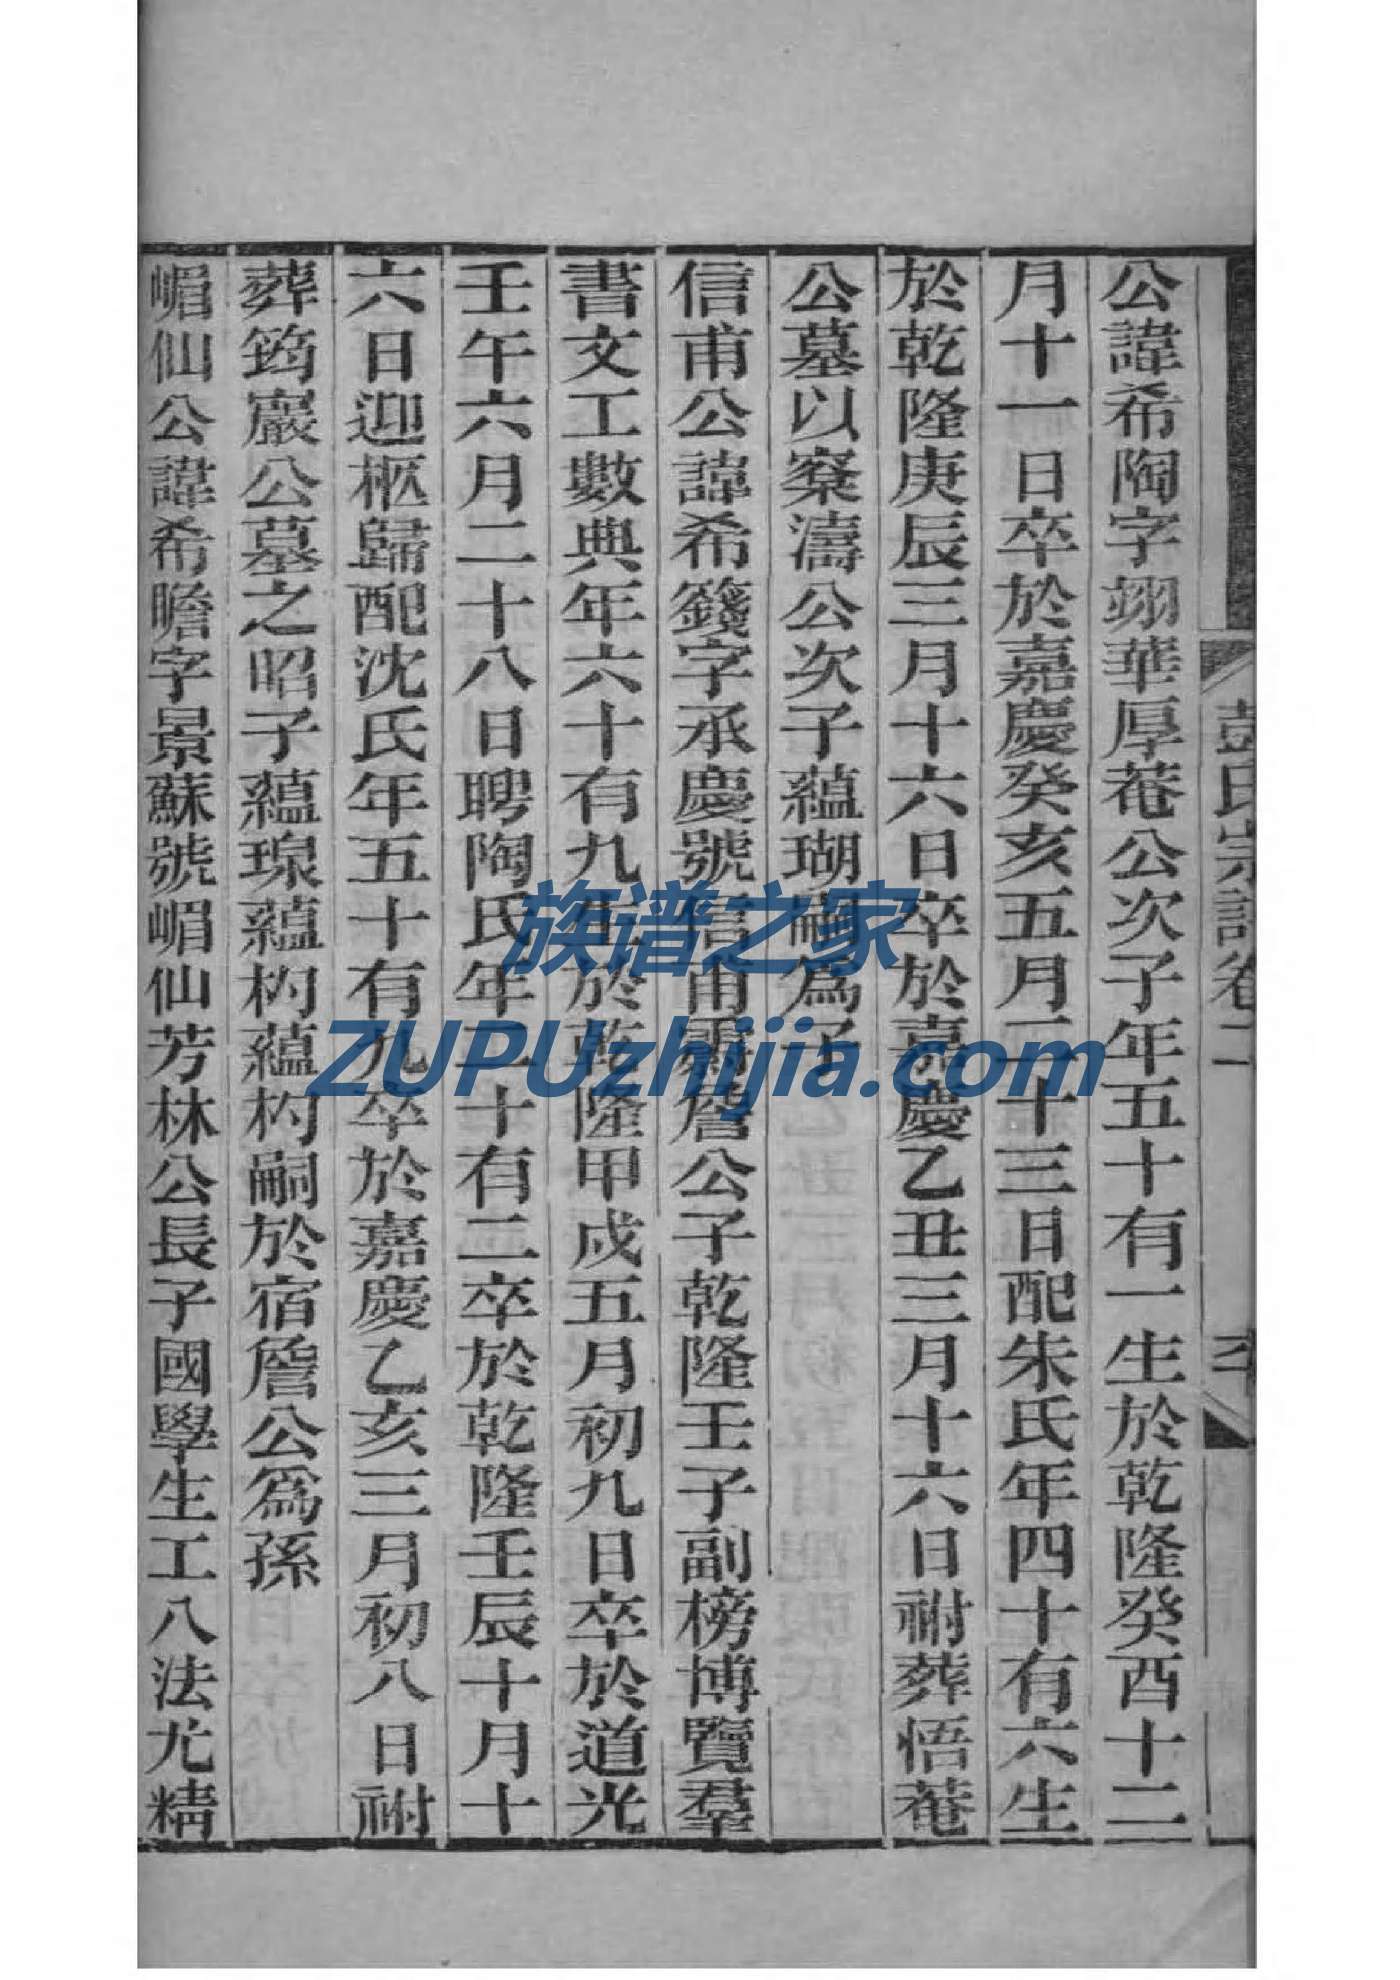 彭氏宗譜卷二
公諱希陶字翊華厚菴公次子年五十有一生於乾隆癸酉十二
月十一日卒於嘉慶癸亥五月二十三日配朱氏年四十有六生
於乾隆庚辰三月十六日卒於嘉慶乙丑三月十六日祔葬悟菴
公墓以寀濤公次子蘊瑚嗣爲子
信甫公諱希籛字承慶號信甫霱詹公子乾隆壬子副榜博覽羣
書文工數典年六十有九生於乾隆甲戌五月初九日卒於道光
壬午六月二十八日聘陶氏年二十有二卒於乾隆壬辰十月十
六日迎柩歸配沈氏年五十有九卒於嘉慶乙亥三月初八日祔
葬筠巖公墓之昭子蘊琅蘊杓蘊杓嗣於宿詹公爲孫
嵋仙公諱希瞻字景蘇號嵋仙芳林公長子國學生工八法尤精
族谱之家
ZUPUzhijia.com